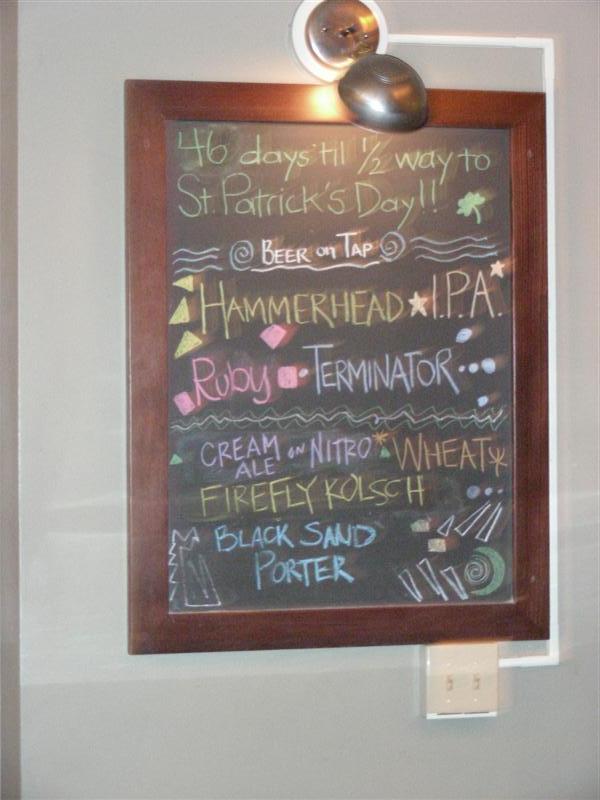 46 days 'til 1/2 way to
St. Patrick's Day!!
BEER on TAP
HAMMERHEAD I.P.A.
Ruby TERMINATOR
CREAM ALE on NITRO WHEAT
FIREFLY KOLSCH
BLACK SAND
PORTER